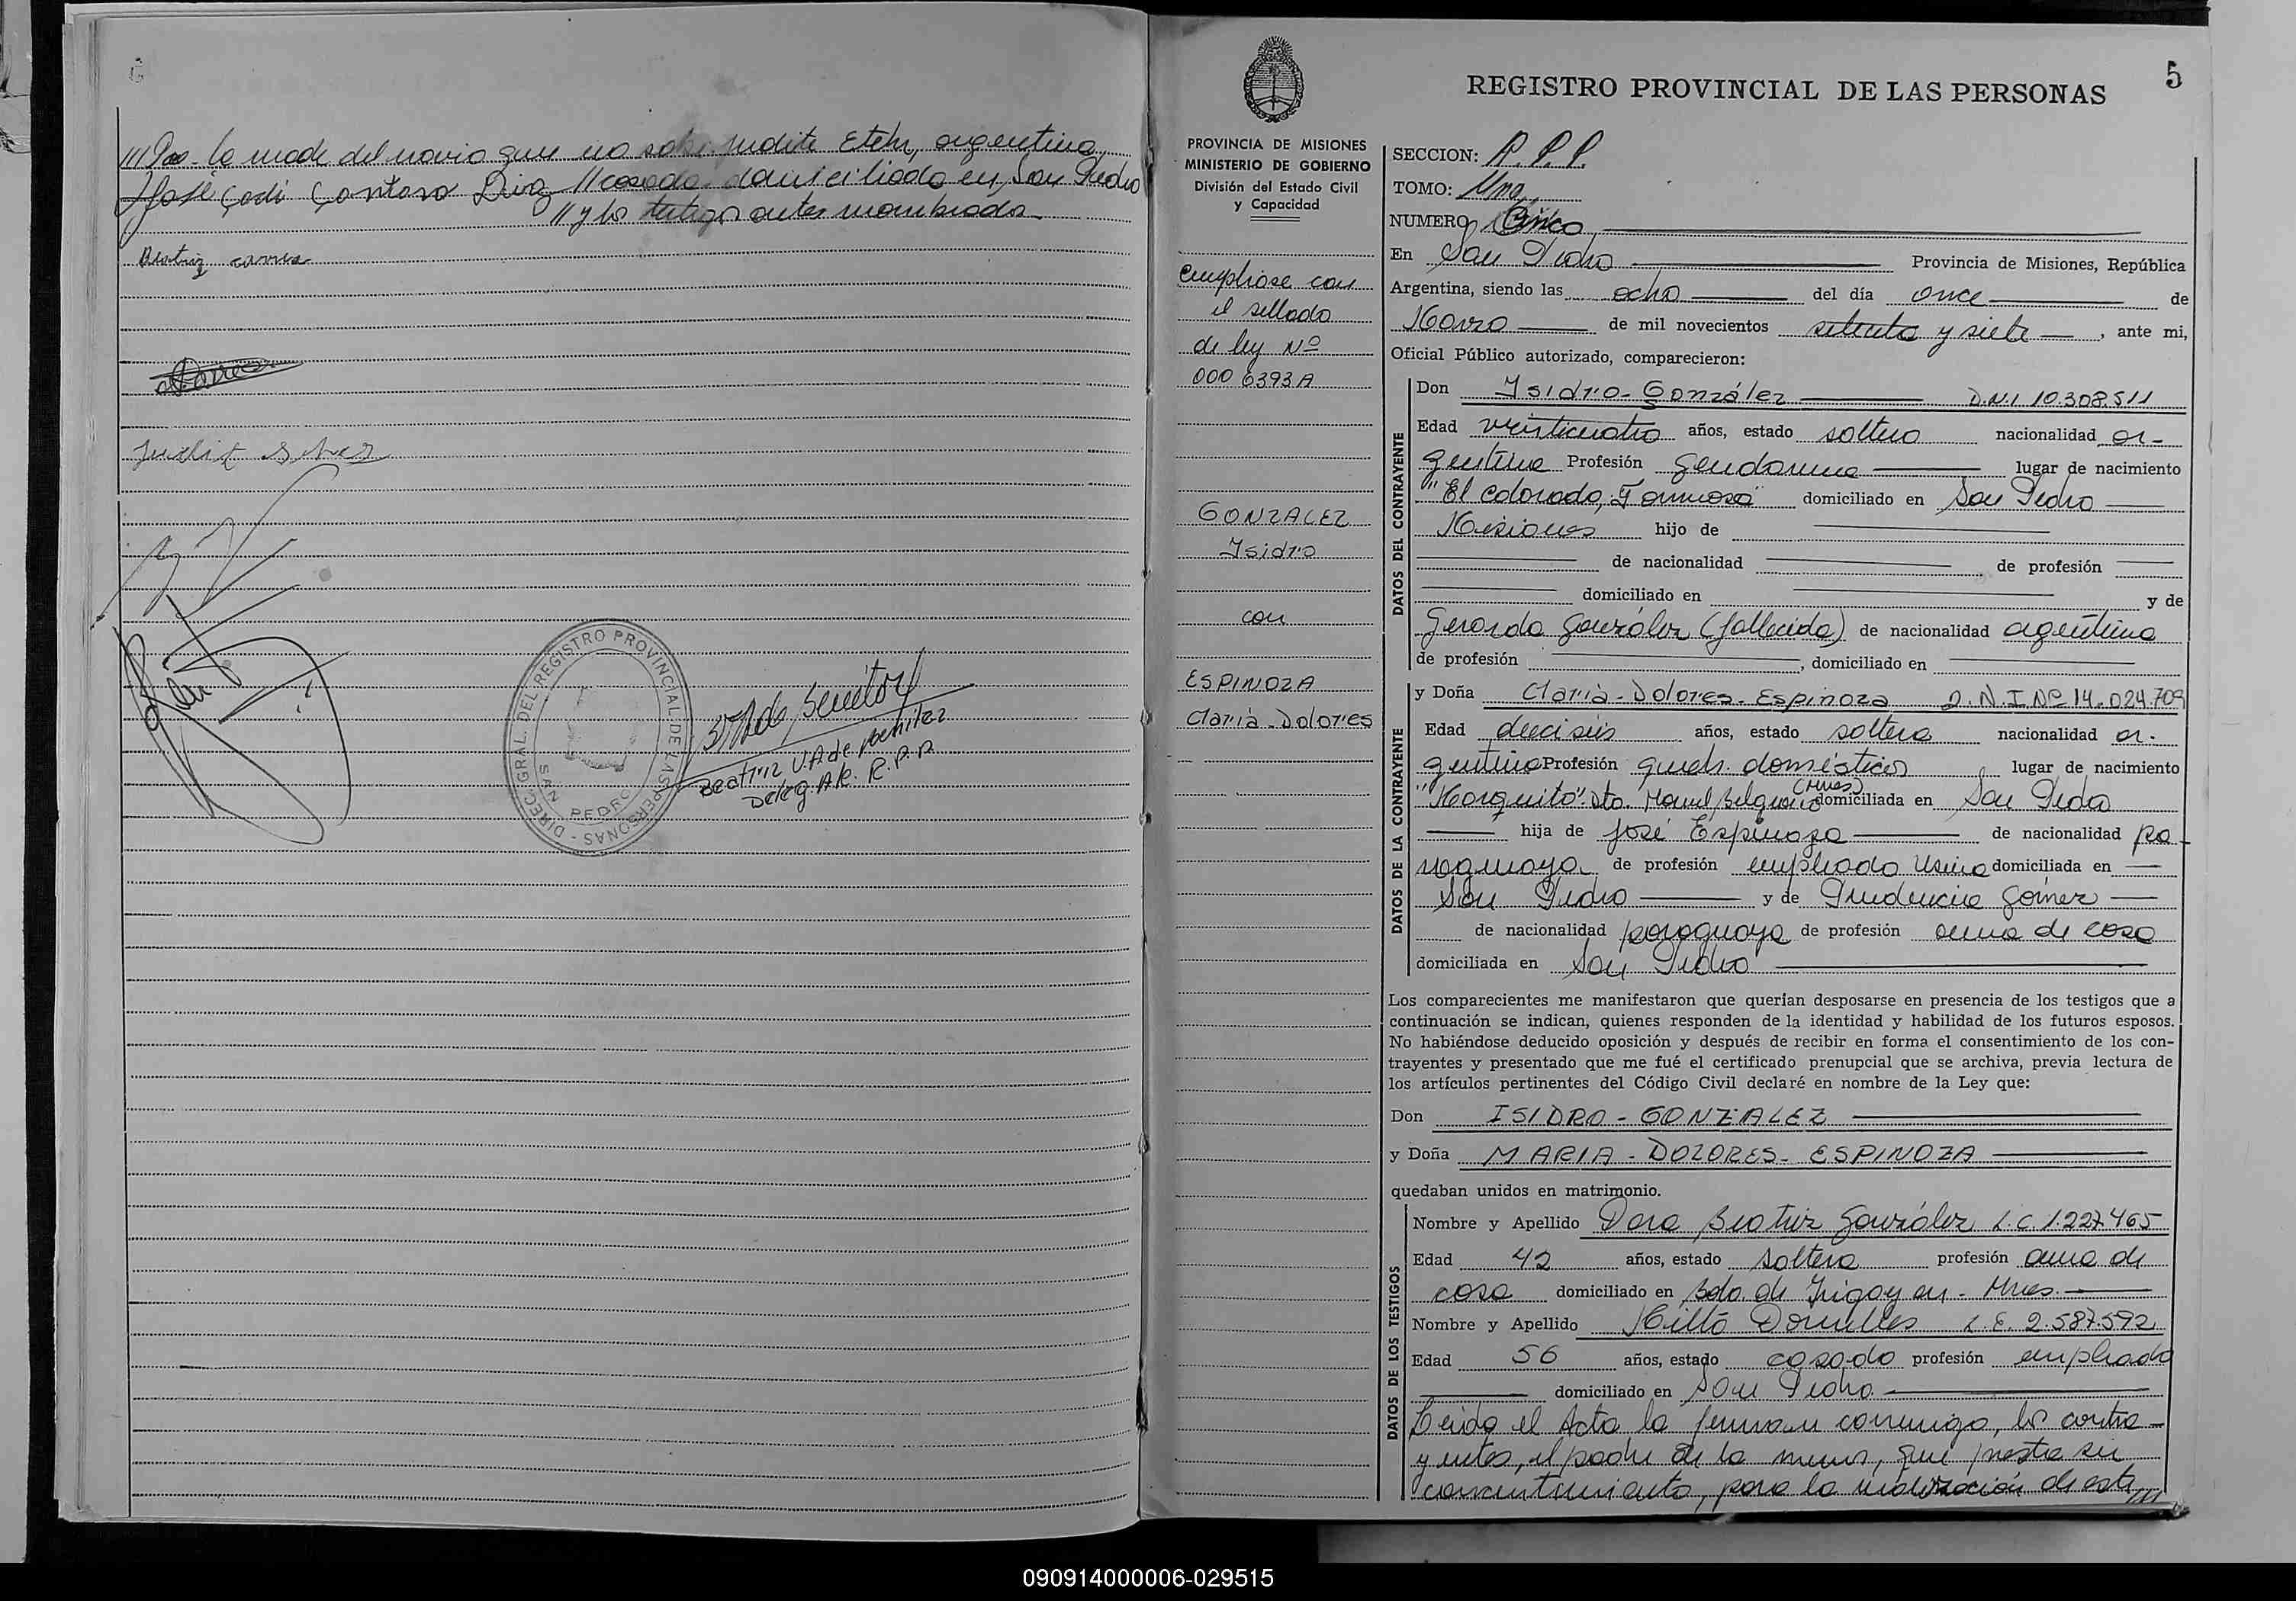 ///Poo- la madre del novio que no sabe. Judith Eteln, argentina,
José Çodi Çontoso Diva // casada domiciliada en San Pedro
// y los testigos antes mombrados
Beatriz
Judit
DIREC. GRAL. DEL REGISTRO PROVINCIAL DE LAS PERSONAS -
SAN PEDRO
Beatriz V.A de Benitez
Deleg. Alc. R.P.P.
5
REGISTRO PROVINCIAL DE LAS PERSONAS
PROVINCIA DE MISIONES
MINISTERIO DE GOBIERNO
División del Estado Civil
y Capacidad
empliase con
el sellado
de ley Nº
000 6393A
GONZALEZ
Isidro
con
ESPINOZA
María-Dolores
SECCION: R.P.P.
TOMO: Uno
NUMERO Cinco
En San Pedro Provincia de Misiones, República
Argentina, siendo las ocho del día once de
Marzo de mil novecientos setenta y siete, ante mi,
Oficial Público autorizado, comparecieron:
DATOS DEL CONTRAYENTE
Don Isidro-González D.N.I 10.308.511
Edad veinticuatro años, estado soltero nacionalidad ar-
gentina Profesión gendarme lugar de nacimiento
"El Colorado, Formosa" domiciliado en San Pedro
Misiones hijo de
de nacionalidad de profesión
domiciliado en y de
Gerarda González (fallecida) de nacionalidad argentina
de profesión , domiciliado en
DATOS DE LA CONTRAYENTE
y Doña María-Dolores-Espinoza D.N.I Nº 14.024.709
Edad dieciseis años, estado soltera nacionalidad ar-
gentina Profesión queh. domésticos lugar de nacimiento
"Marquito" dto. Manuel Belgrano (Mnes) domiciliada en San Pedro
hija de José Espinoza de nacionalidad pa-
raguaya de profesión empleado Usina domiciliada en
San Pedro y de Prudencia Gómez
de nacionalidad paraguaya de profesión ama de casa
domiciliada en San Pedro
Los comparecientes me manifestaron que querían desposarse en presencia de los testigos que a
continuación se indican, quienes responden de la identidad y habilidad de los futuros esposos.
No habiéndose deducido oposición y después de recibir en forma el consentimiento de los con-
trayentes y presentado que me fué el certificado prenupcial que se archiva, previa lectura de
los artículos pertinentes del Código Civil declaré en nombre de la Ley que:
Don ISIDRO-GONZALEZ
y Doña MARIA-DOLORES-ESPINOZA
quedaban unidos en matrimonio.
DATOS DE LOS TESTIGOS
Nombre y Apellido Dora Beatriz González L.C. 1.227.465
Edad 42 años, estado soltera profesión ama de
casa domiciliado en Bdo. de Irigoyen - Mnes.
Nombre y Apellido Milto Dornelles L.E. 2.587.592
Edad 56 años, estado casado profesión empleado
domiciliado en San Pedro
Leida el Acta la firman conmigo, los contra-
yentes, el padre de la menor, que presta su
consentimiento, para la realización de este///
090914000006-029515